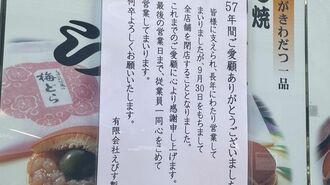 がきわだつ一品
焼
57年間ご愛顧ありがとうございまし
皆様に支えられ、長年にわたり営業して
まいりましたが、9月30日をもちまして
全店舗を閉店することとなりました。
これまでのご愛顧に心より感謝申し上げます。
最後の営業日まで、従業員一同心をこめて
営業してまいります。
何卒よろしくお願いいたします。
有限会社えびす製
シ
梅どら